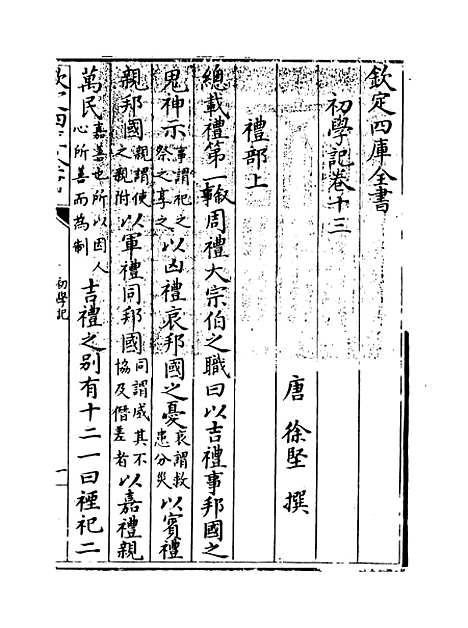 欽定四庫全書
初學記卷十三
唐 徐堅 撰
禮部上
總載禮第一叙周禮大宗伯之職曰以吉禮事邦國之
鬼神示事謂祀之祭之享之以凶禮哀邦國之憂哀謂救患分災以賓禮
親邦國親謂使之親附以軍禮同邦國同謂威其不協及僭差者以嘉禮親
萬民嘉善也所以因人心所善而為制吉禮之别有十二一曰禋祀二
初學記
一